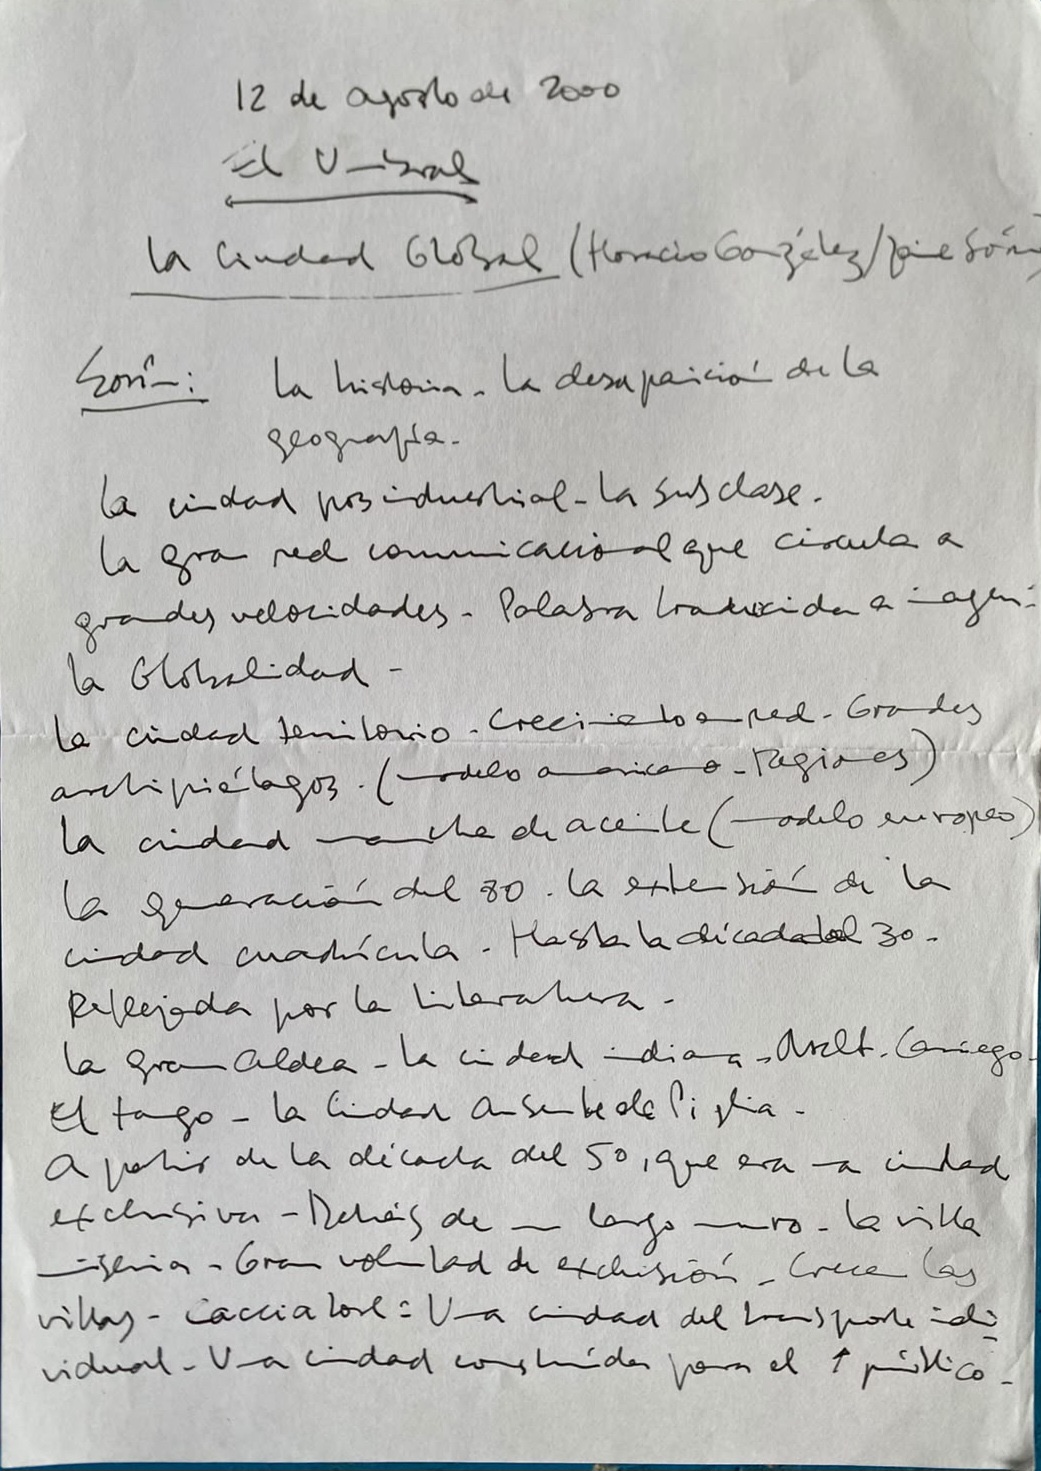 12 de agosto de 2000
El Umbral
La Ciudad Global (Horacio González/
Sorín: La historia - La desaparición de la
geografía.
La ciudad posindustrial - La subclase.
La gran red comunicacional que circula a
grandes velocidades - Palabra traducida a imagen.
La Globalidad -
La ciudad territorio - Crecimiento en red - Grandes
archipiélagos. (modelo americano - Regiones)
La ciudad mancha de aceite (modelo europeo)
La generación del 80. La extensión de la
ciudad cuadrícula - Hasta la década del 30.
Reflejada por la literatura -
La Gran Aldea - La ciudad indiana - Arlt - Carriego -
El tango - La Ciudad Ausente de Piglia -
A partir de la década del 50, que era una ciudad
exclusiva - Detrás de un largo muro - La villa
miseria - Gran voluntad de exclusión - Crecen las
villas - Cacciatore: Una ciudad del transporte indi-
vidual - Una ciudad construida para el ↑ público -